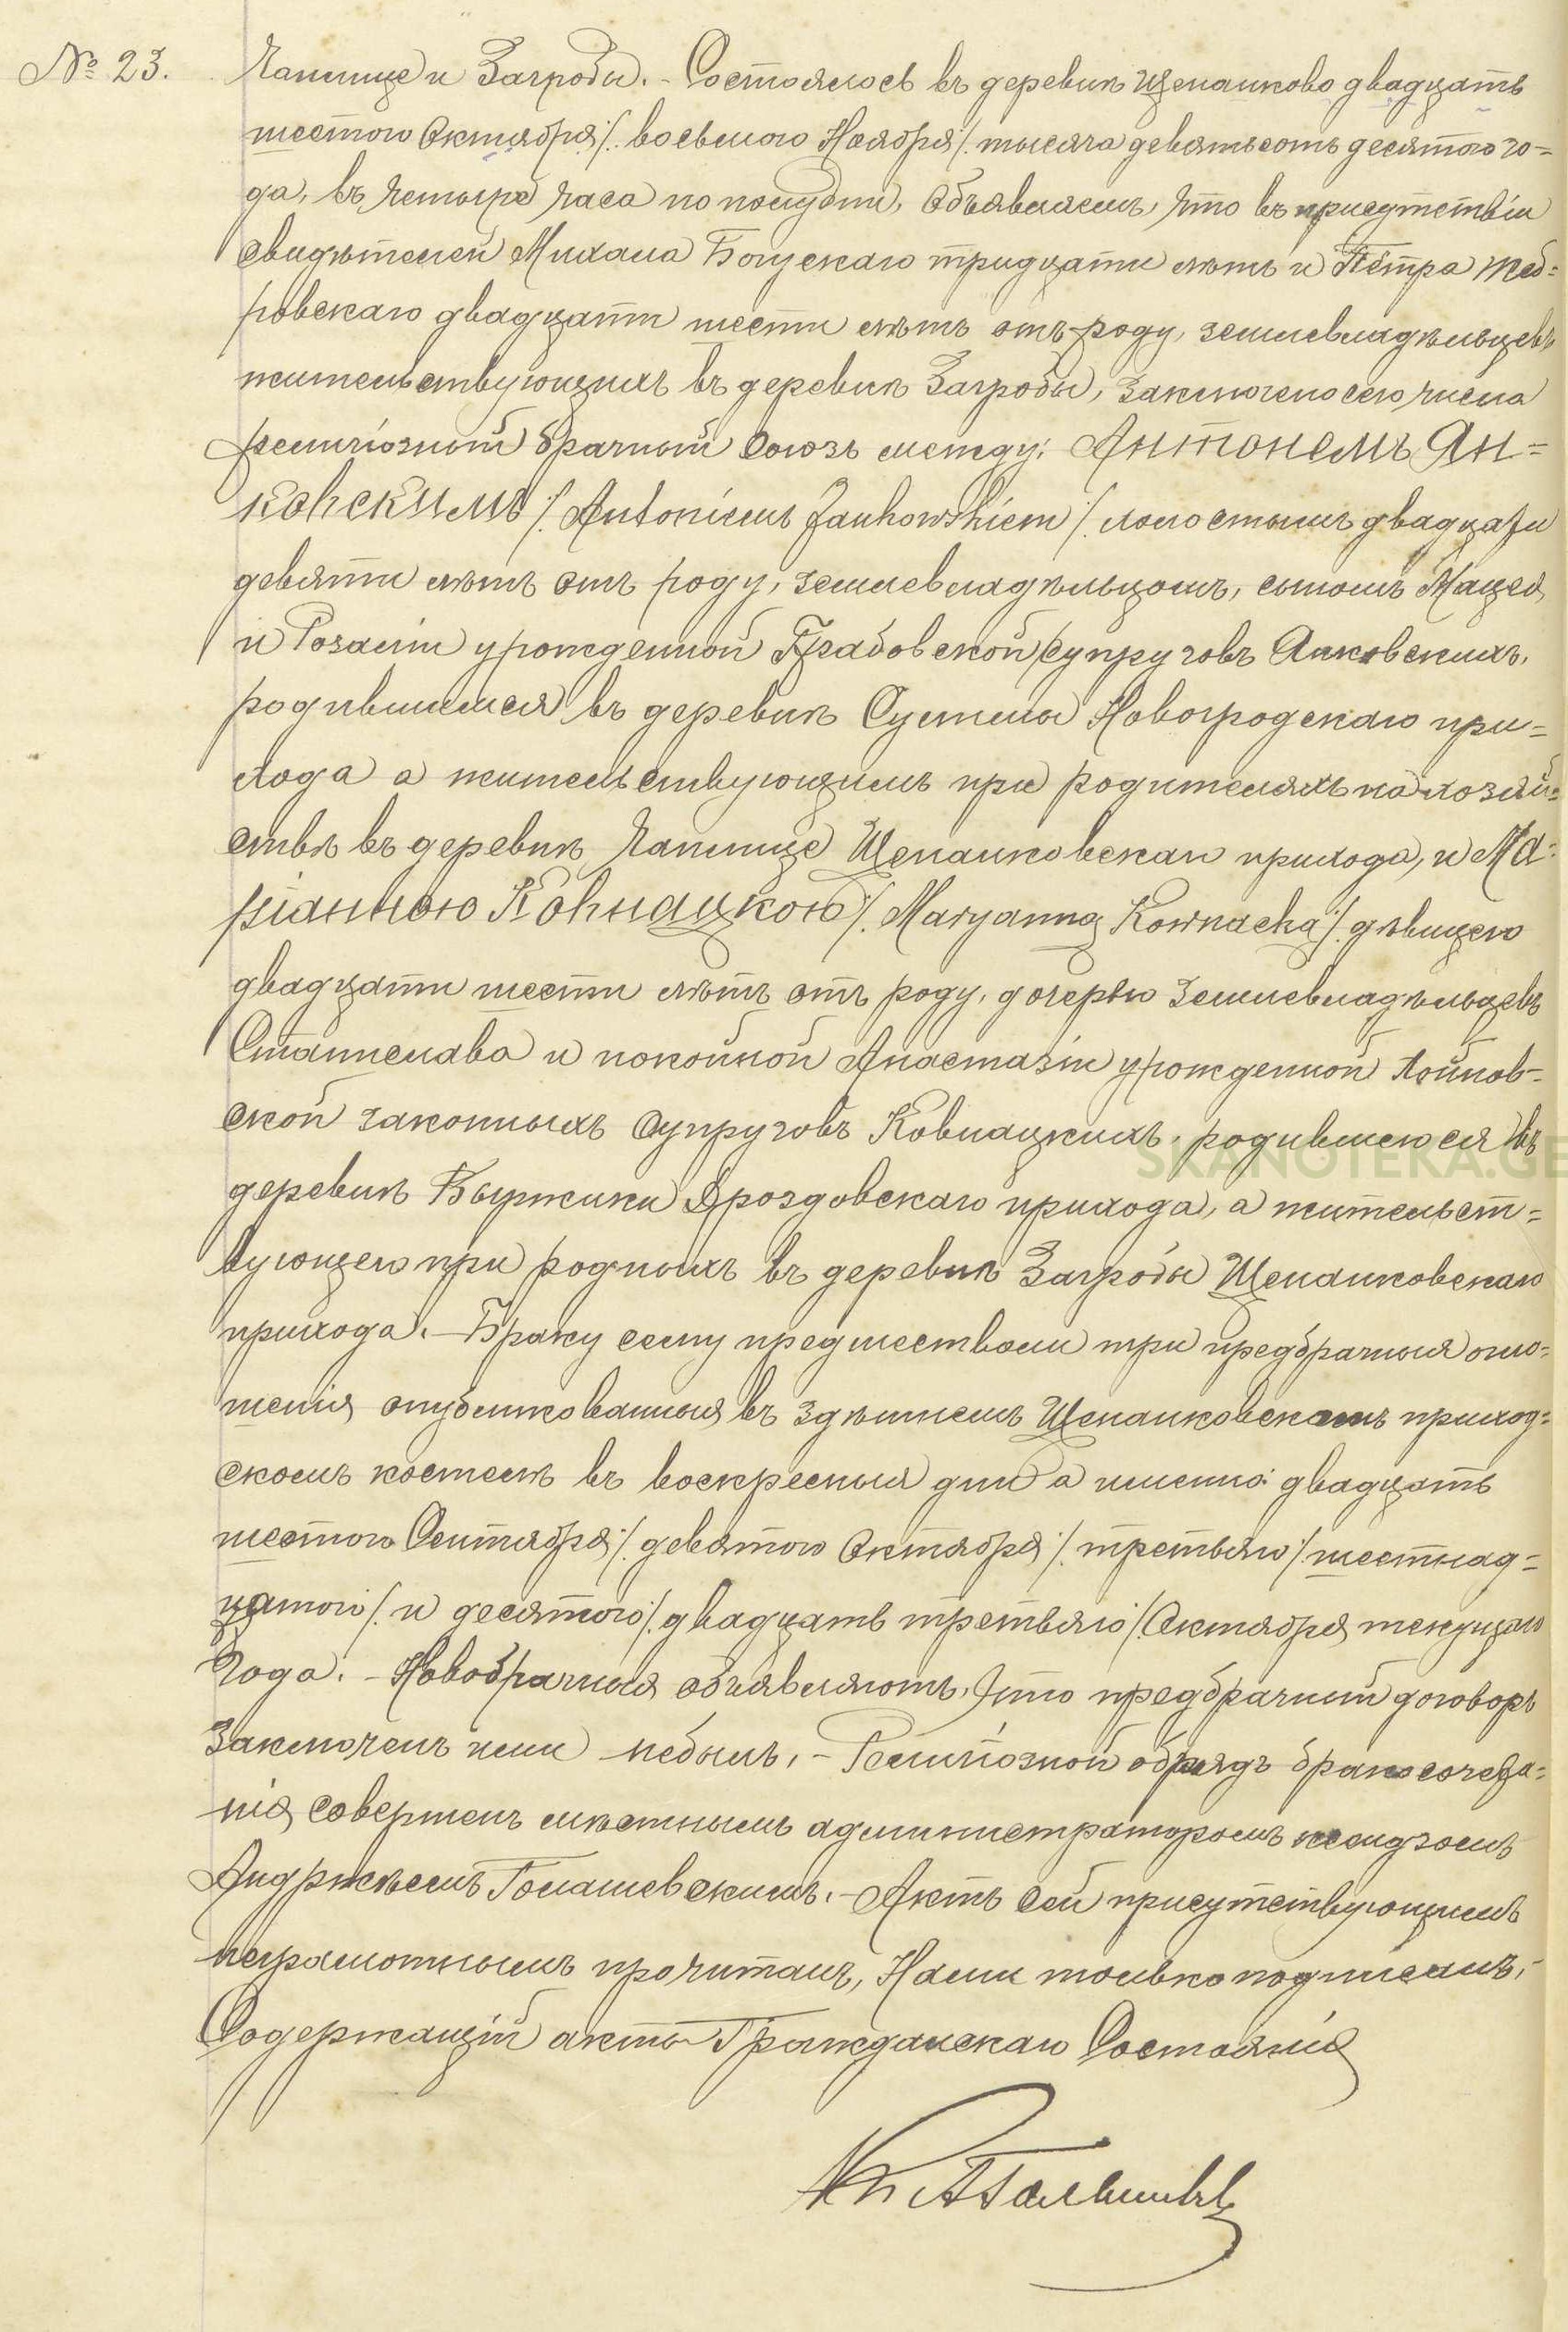 № 23. Чаплице и Загроды. - Состоялось въ деревнѣ Щепанково двадцать
шестого Октября /: восьмого Ноября :/ тысяча девятьсотъ десятого го=
да, въ четыре часа по полудни. Объявляемъ, что въ присутствіи
свидѣтелей Михала Богускаго тридцати лѣтъ и Пётра
двадцати шести лѣтъ отъ роду, землевладѣльцевъ
жительствующихъ въ деревнѣ Загроды, заключено сего числа
религіозный брачный союзъ между: Антонемъ Ян=
ковскимъ /: Antoniem Jankowskiem :/ холостымъ двадцати
девяти лѣтъ отъ роду, землевладѣльцомъ, сыномъ Мацея
и Розаліи урожденной Грабовской супруговъ Янковскихъ,
родившимся въ деревнѣ Сулимы Новогродскаго при=
хода а жительствующимъ при родителяхъ на хозяй=
ствѣ въ деревнѣ Чаплице Щепанковскаго прихода, и Ма=
ріанною Ковнацкою /: Maryanną Kownacką :/ дѣвицею
двадцати шести лѣтъ отъ роду, дочерью землевладѣльцевъ
Станислава и покойной Анастазіи урожденной Хойнов=
ской законныхъ супруговъ Ковнацкихъ, родившеюся въ
деревнѣ Дроздовскаго прихода, а жительст=
вующею при родныхъ въ деревнѣ Загроды Щепанковскаго
прихода. - Браку сему предшествовали три предбрачныя огло=
шенія опубликованныя въ здѣшнемъ Щепанковскомъ приход=
скомъ костелѣ въ воскресныя дни а именно: двадцать
шестого Сентября /: девятого Октября :/ третьяго /: шестнад=
цатого :/ и десятого /: двадцать третьяго :/ Октября текущаго
года. - Новобрачныя объявляютъ, что предбрачный договоръ
заключенъ ими небылъ. - Религіозной обрядъ бракосочета=
нія совершенъ мѣстнымъ администраторомъ ксендзомъ
Андржеемъ. - Актъ сей присутствующимъ
неграмотнымъ прочитанъ, Нами только подписанъ. -
Содержащій акты Гражданскаго Состоянія